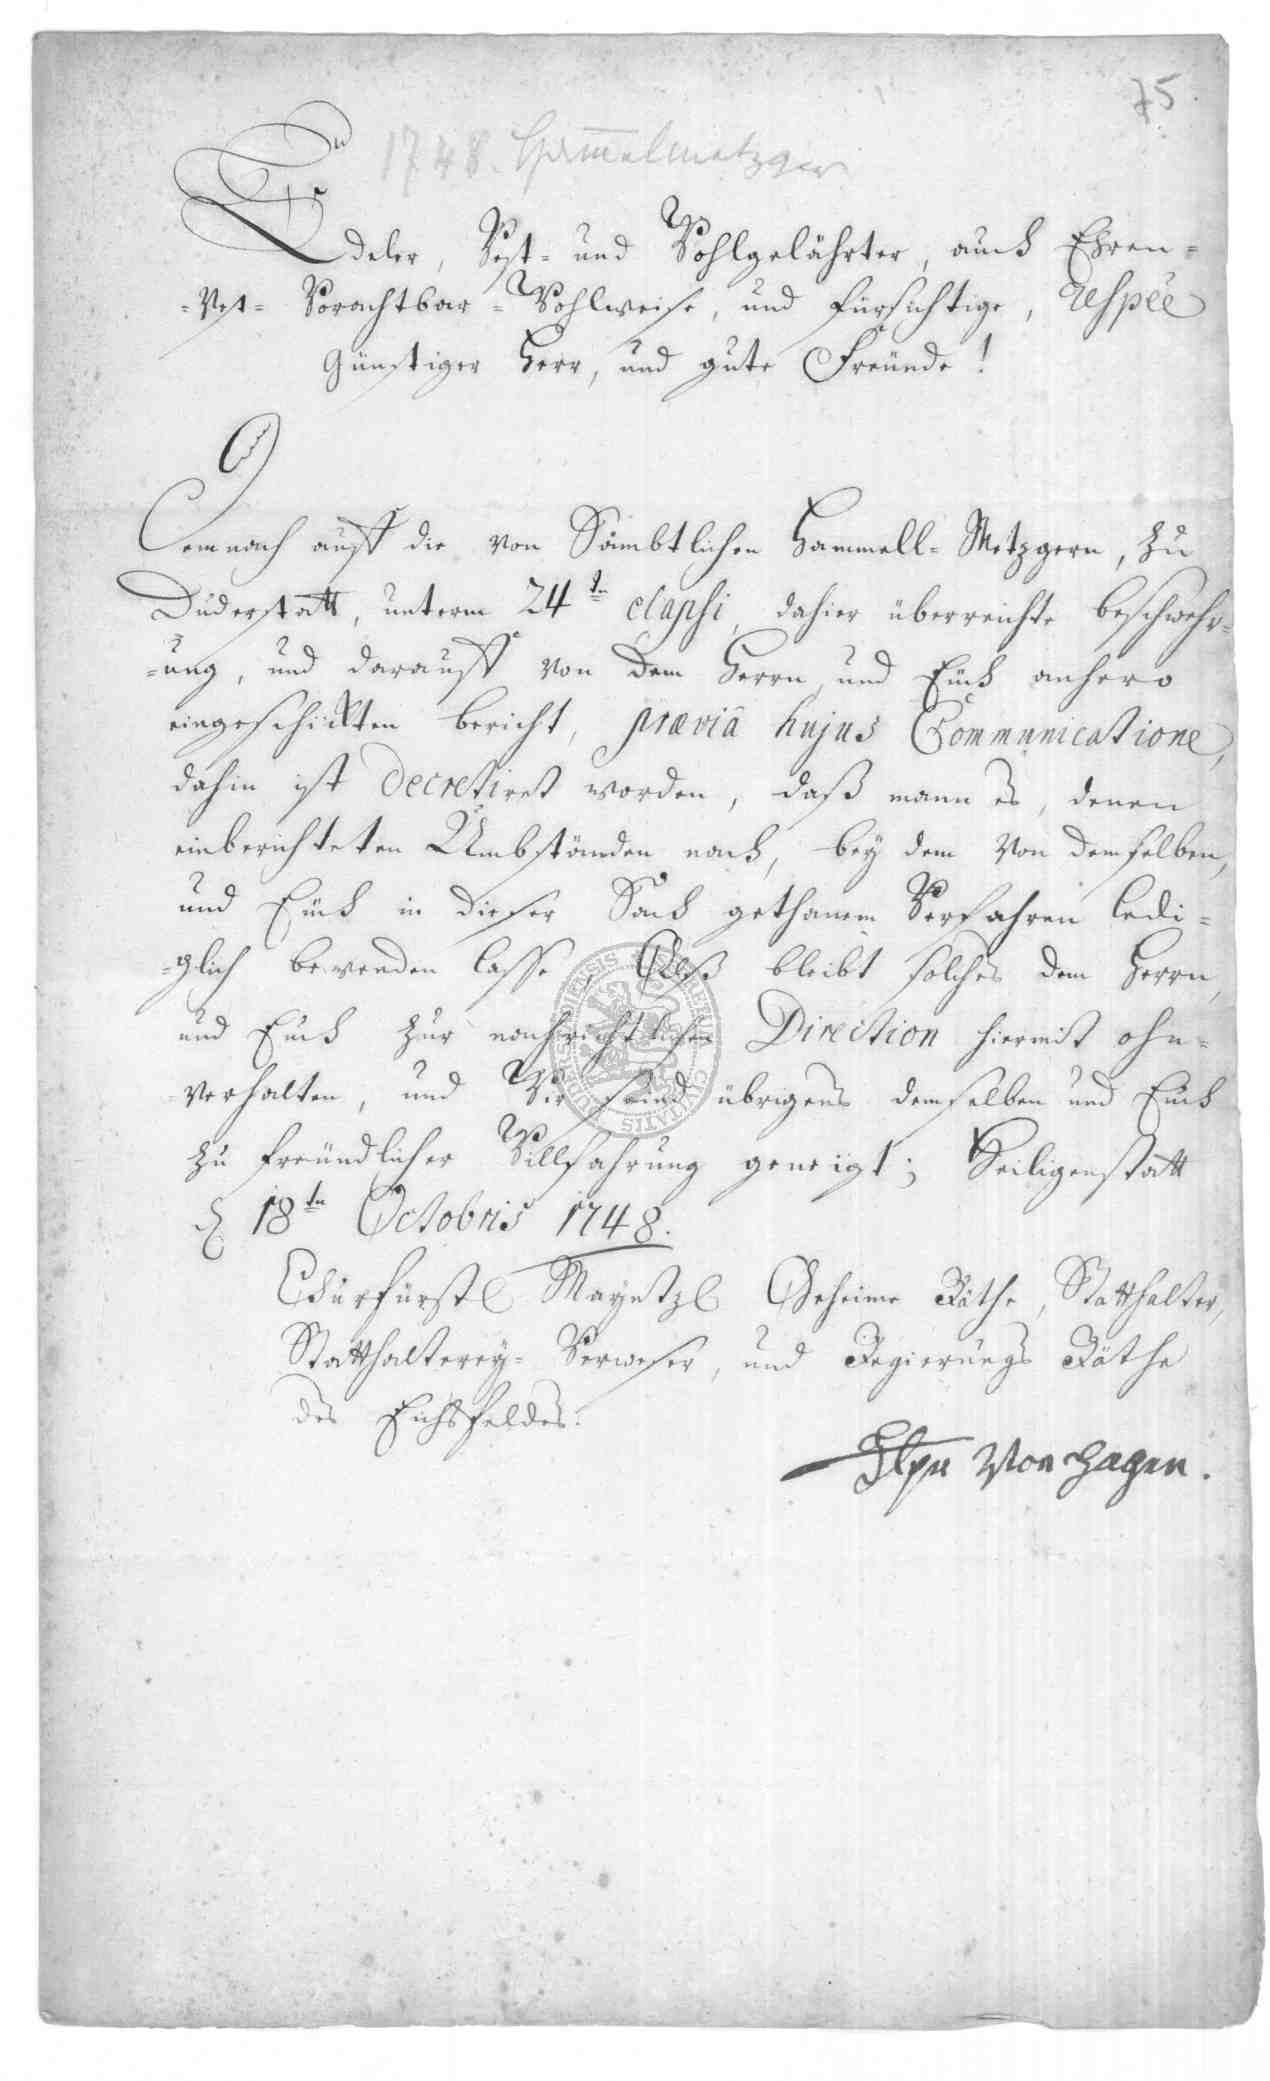 75
1748. Hammelmetzger
Edeler, Vest- und Wohlgelährter, auch Ehren-
-Vest- Vorachtbar- Wohlweise, und fürsichtige, respēe
günstiger Herr, und gute Freünde!
Demnach auff die von Sämbtlichen Hammell-Metzgern, zu
Duderstatt, unterm 24tn elapsi, dahier überreichte beschwehr-
-ung, und darauff von dem Herrn, und Eüch anhero
eingeschickten bericht, præviâ hujus Communicatione,
dahin ist decretiret worden, daß mann es, denen
einberichteten Umbständen nach, bey dem von demselben,
und Eüch in dieser Sach gethanem Verfahren ledi-
-glich bewenden lasse, bleibt solches dem Herrn,
und Euch zur nachrichtlichen Direction hiermit ohn-
-verhalten, und Wir seind übrigens demselben und Eüch
zu freündlicher Willfahrung geneigt; Heiligenstatt
d 18tn Octobris 1748.
Churfürstl Mayntzl Geheime Räthe, Statthalter,
Statthalterey-Verweser, und Regierungs Räthe
des Eichsfeldes.
von Hagen.